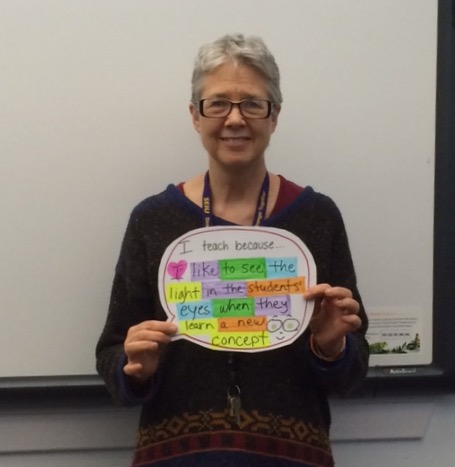 I teach because...
I like to see the
light in the students'
eyes when they
learn a new
concept
SEIU